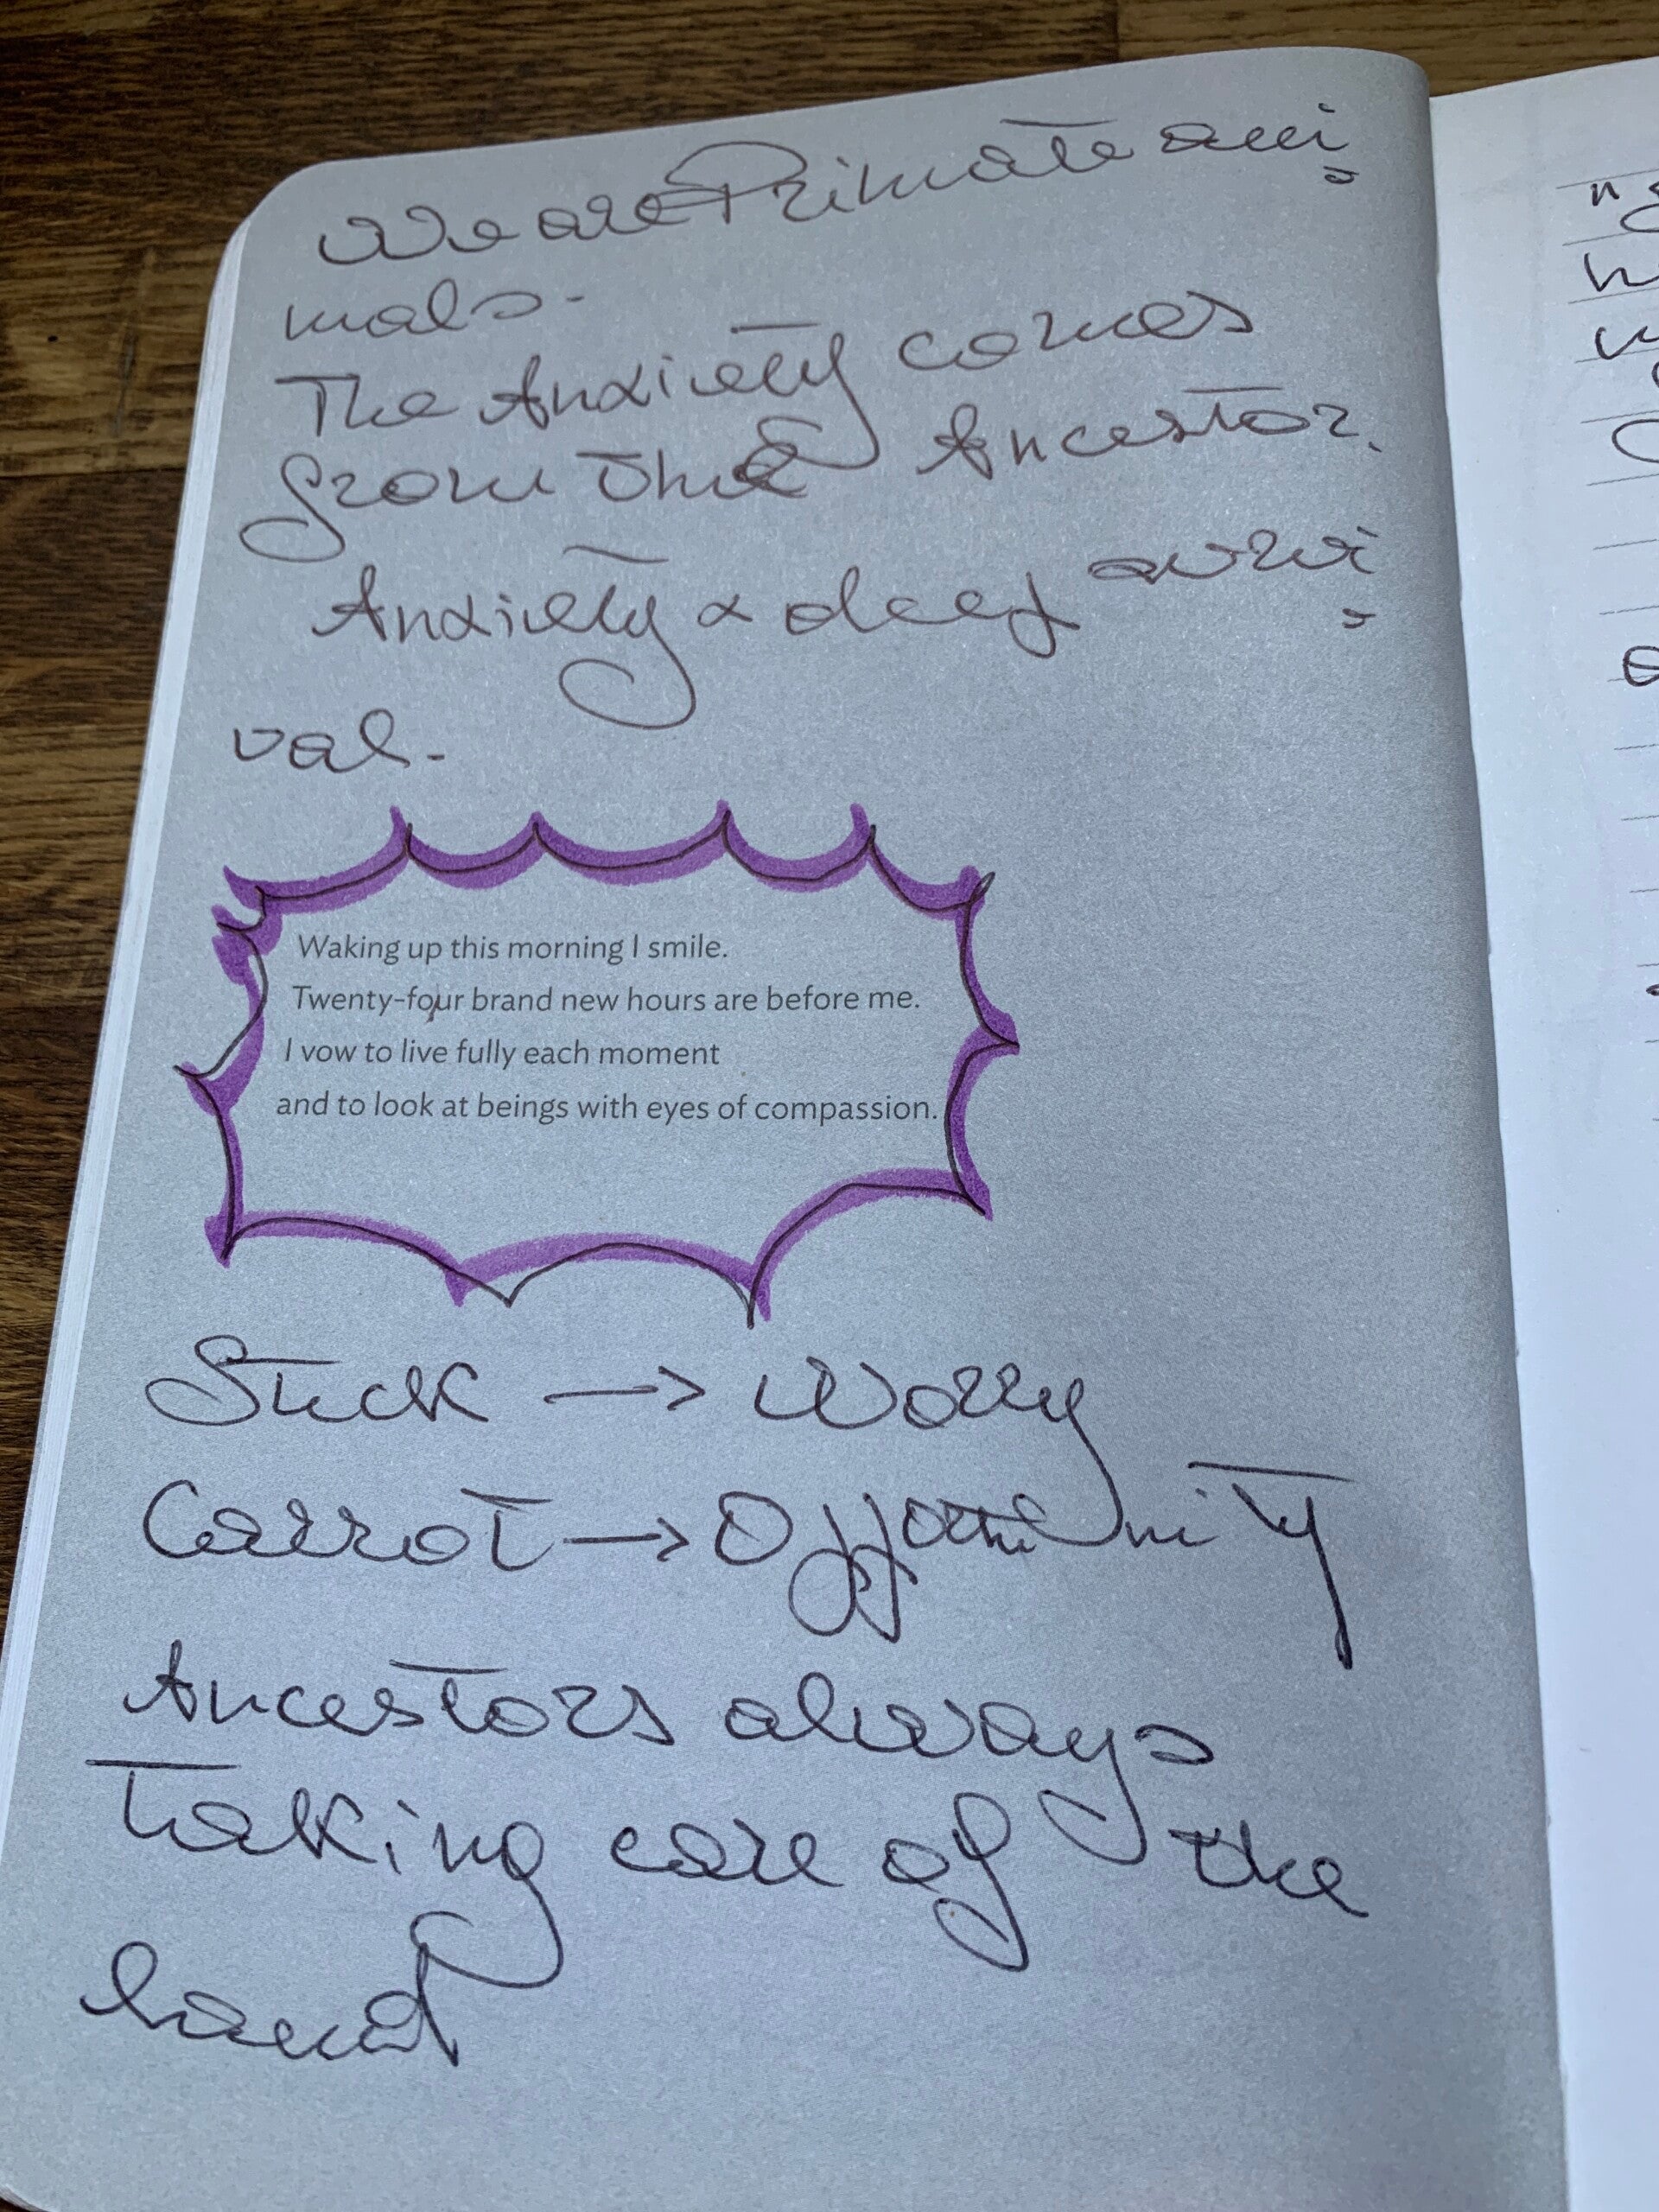 We are Primate ani=
mals.
The Anxiety comes
from the Ancestor.
Anxiety & deep survi=
val.
Waking up this morning I smile.
Twenty-four brand new hours are before me.
I vow to live fully each moment
and to look at beings with eyes of compassion.
Stick → Worry
Carrot → Opportunity
Ancestors always
Taking care of the
land